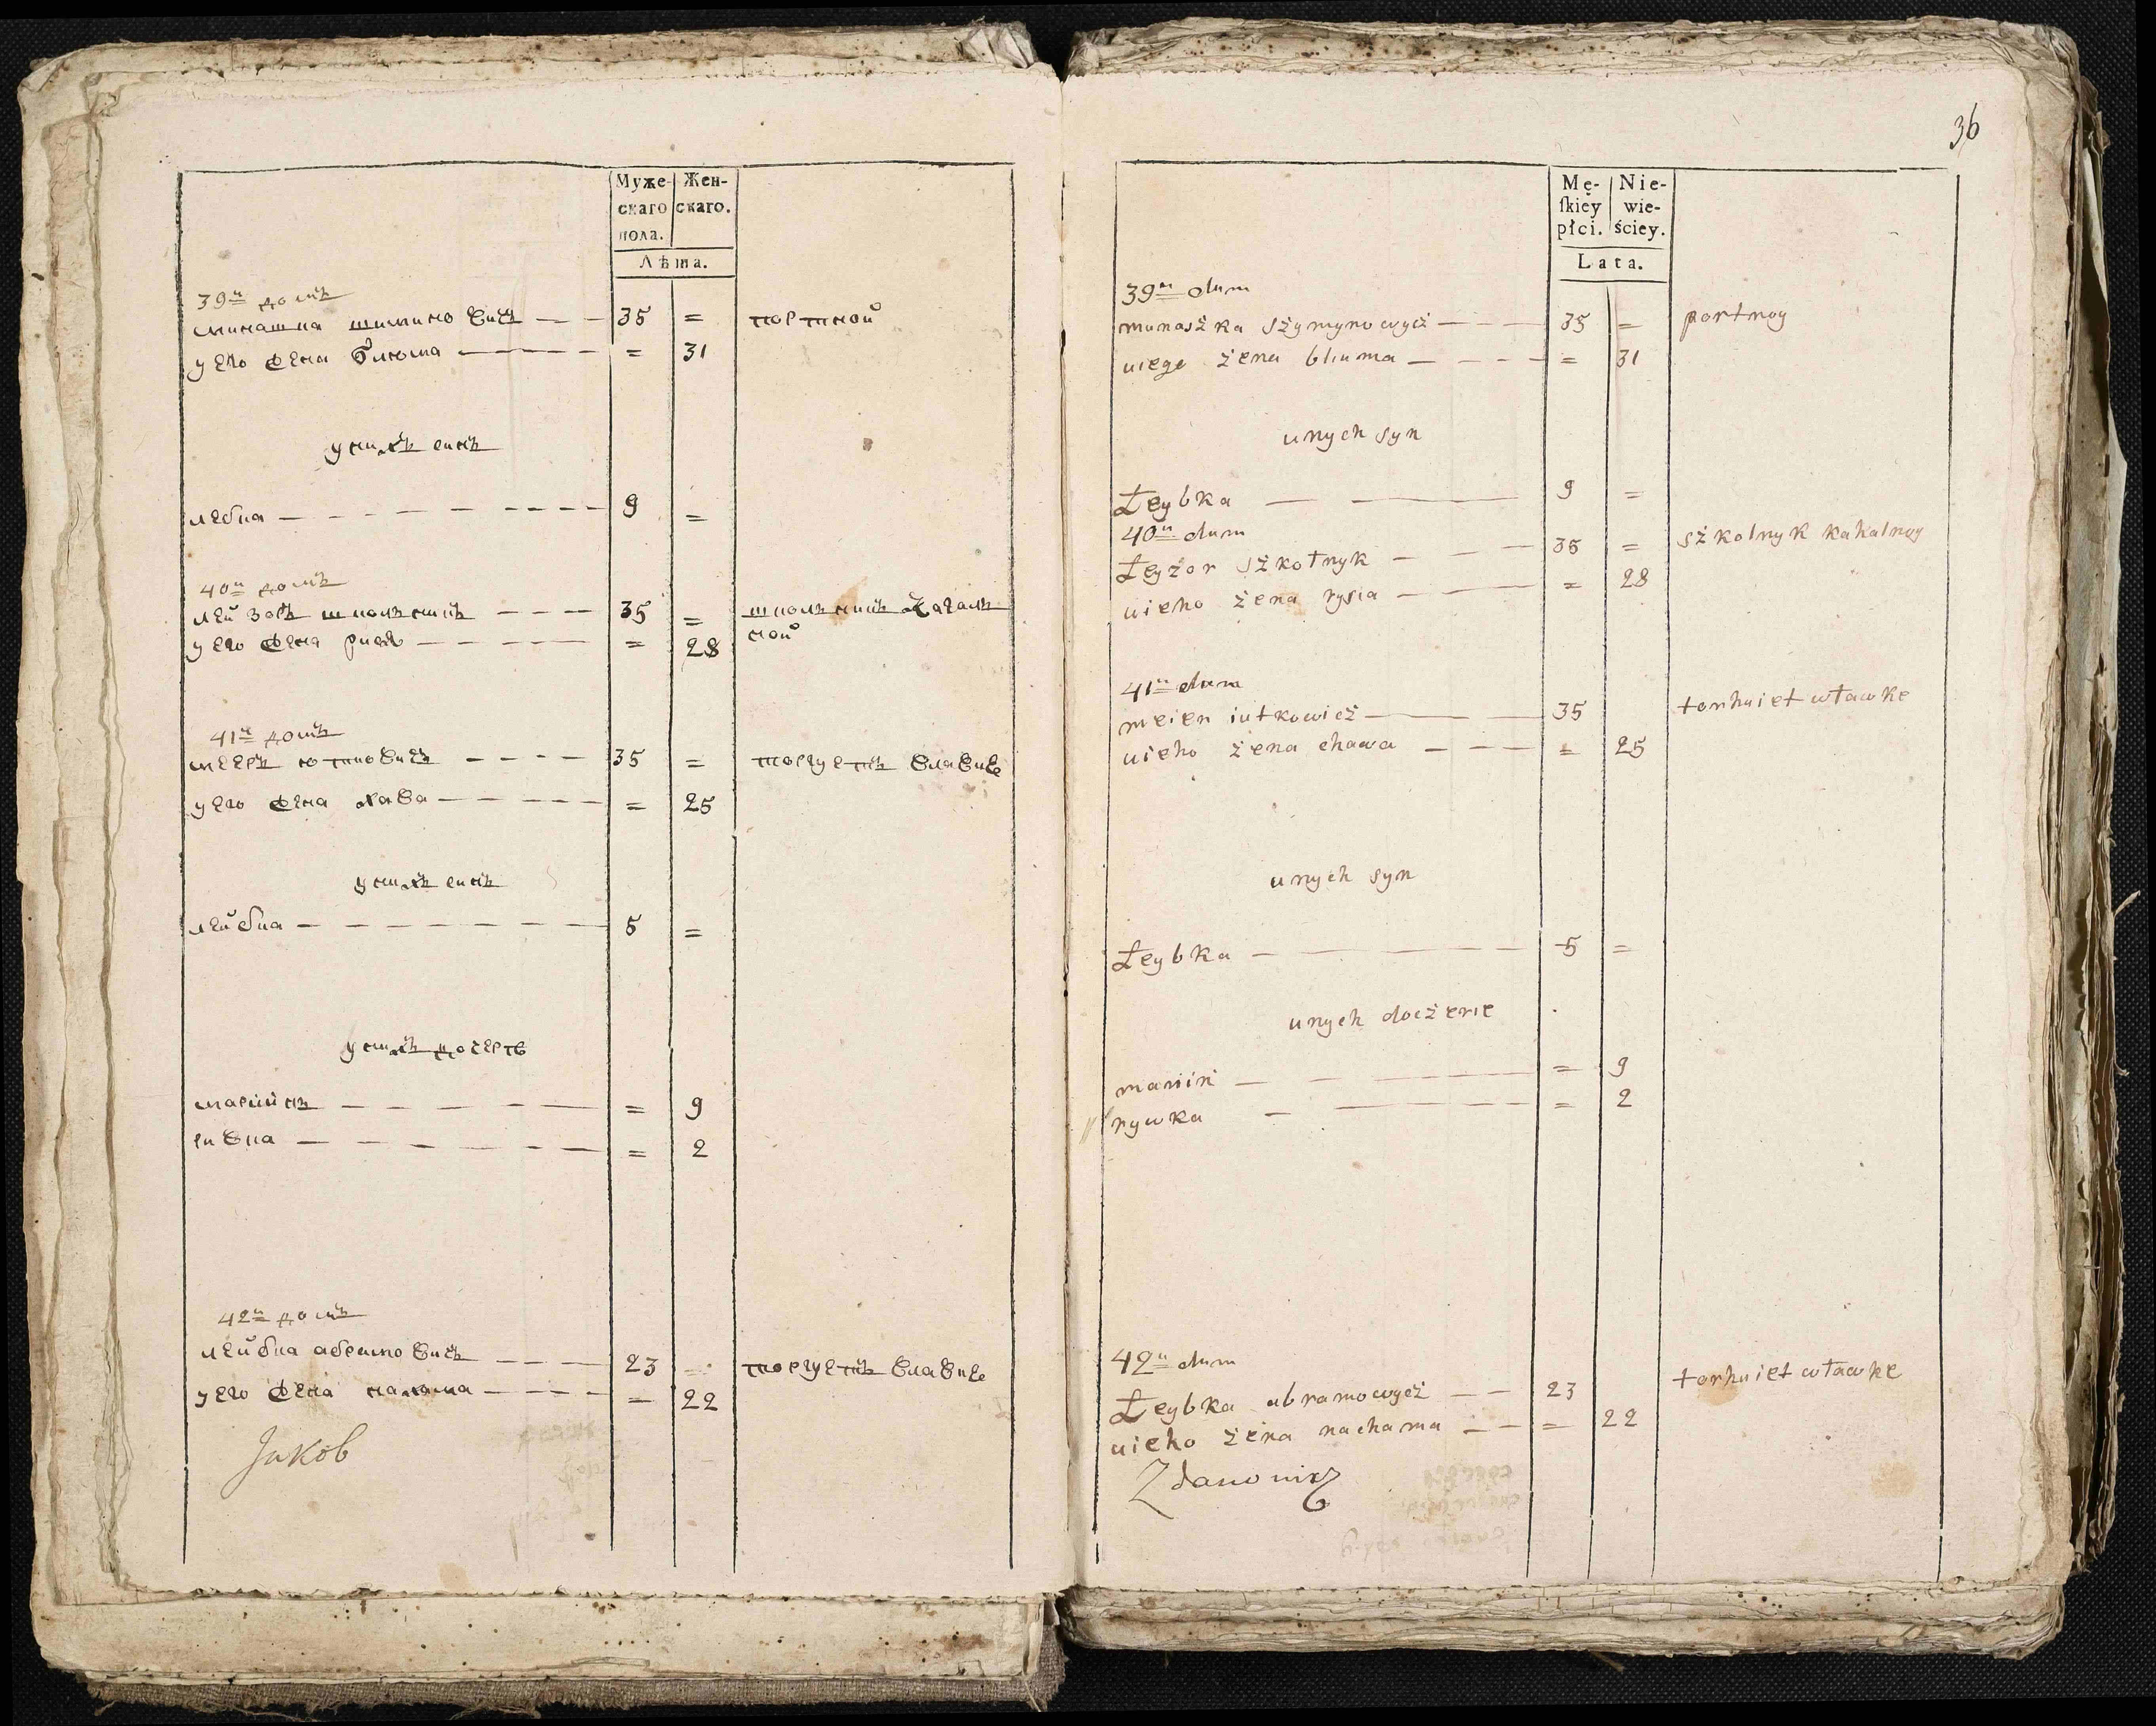 Муже-
скаго
пола.
Жен-
скаго.
Лѣта.
39й домъ
минашка шимино вичъ 35 = портной
у его жена блюма = 31
у нихъ синъ
лебка 9 =
40й домъ
лейзоръ школьникъ 35 = школьникъ кагаль
ной
у его жена рися = 28
41й домъ
мееръ ютковичъ 35 = торгуетъ влавке
у его жена хава = 25
у нихъ синъ
лейбка 5 =
у нихъ дочерѣ
марийнъ = 9
ривка = 2
42й домъ
лейбка абрамовичъ 23 = торгуетъ влавке
у его жена нахама = 22
Jakob
36
Mę-
ſkiey
płci.
Nie-
wie-
ściey.
Lata.
39й dum
munaszka szymynowycz 35 = portnoy
uiego żena bluma = 31
unych syn
Łeybka 9 =
40й dum
Łeyzor szkołnyk 35 = szkolnyk kahalnoy
uieho żena rysia = 28
41й dum
meier iutkowicz 35 torhuiet wławke
uieho żena chawa = 25
unych syn
Łeybka 5 =
unych doczerie
mariin = 9
rywka = 2
42й dum
Łeybka abramowycz 23 torhuiet wławke
uieho żena nachama = 22
Zdanowicz